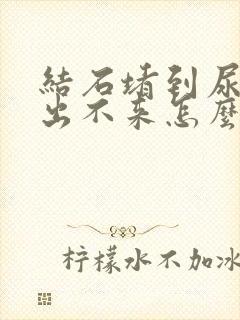 結石堵到尿
出不来怎麼
柠檬水不加冰